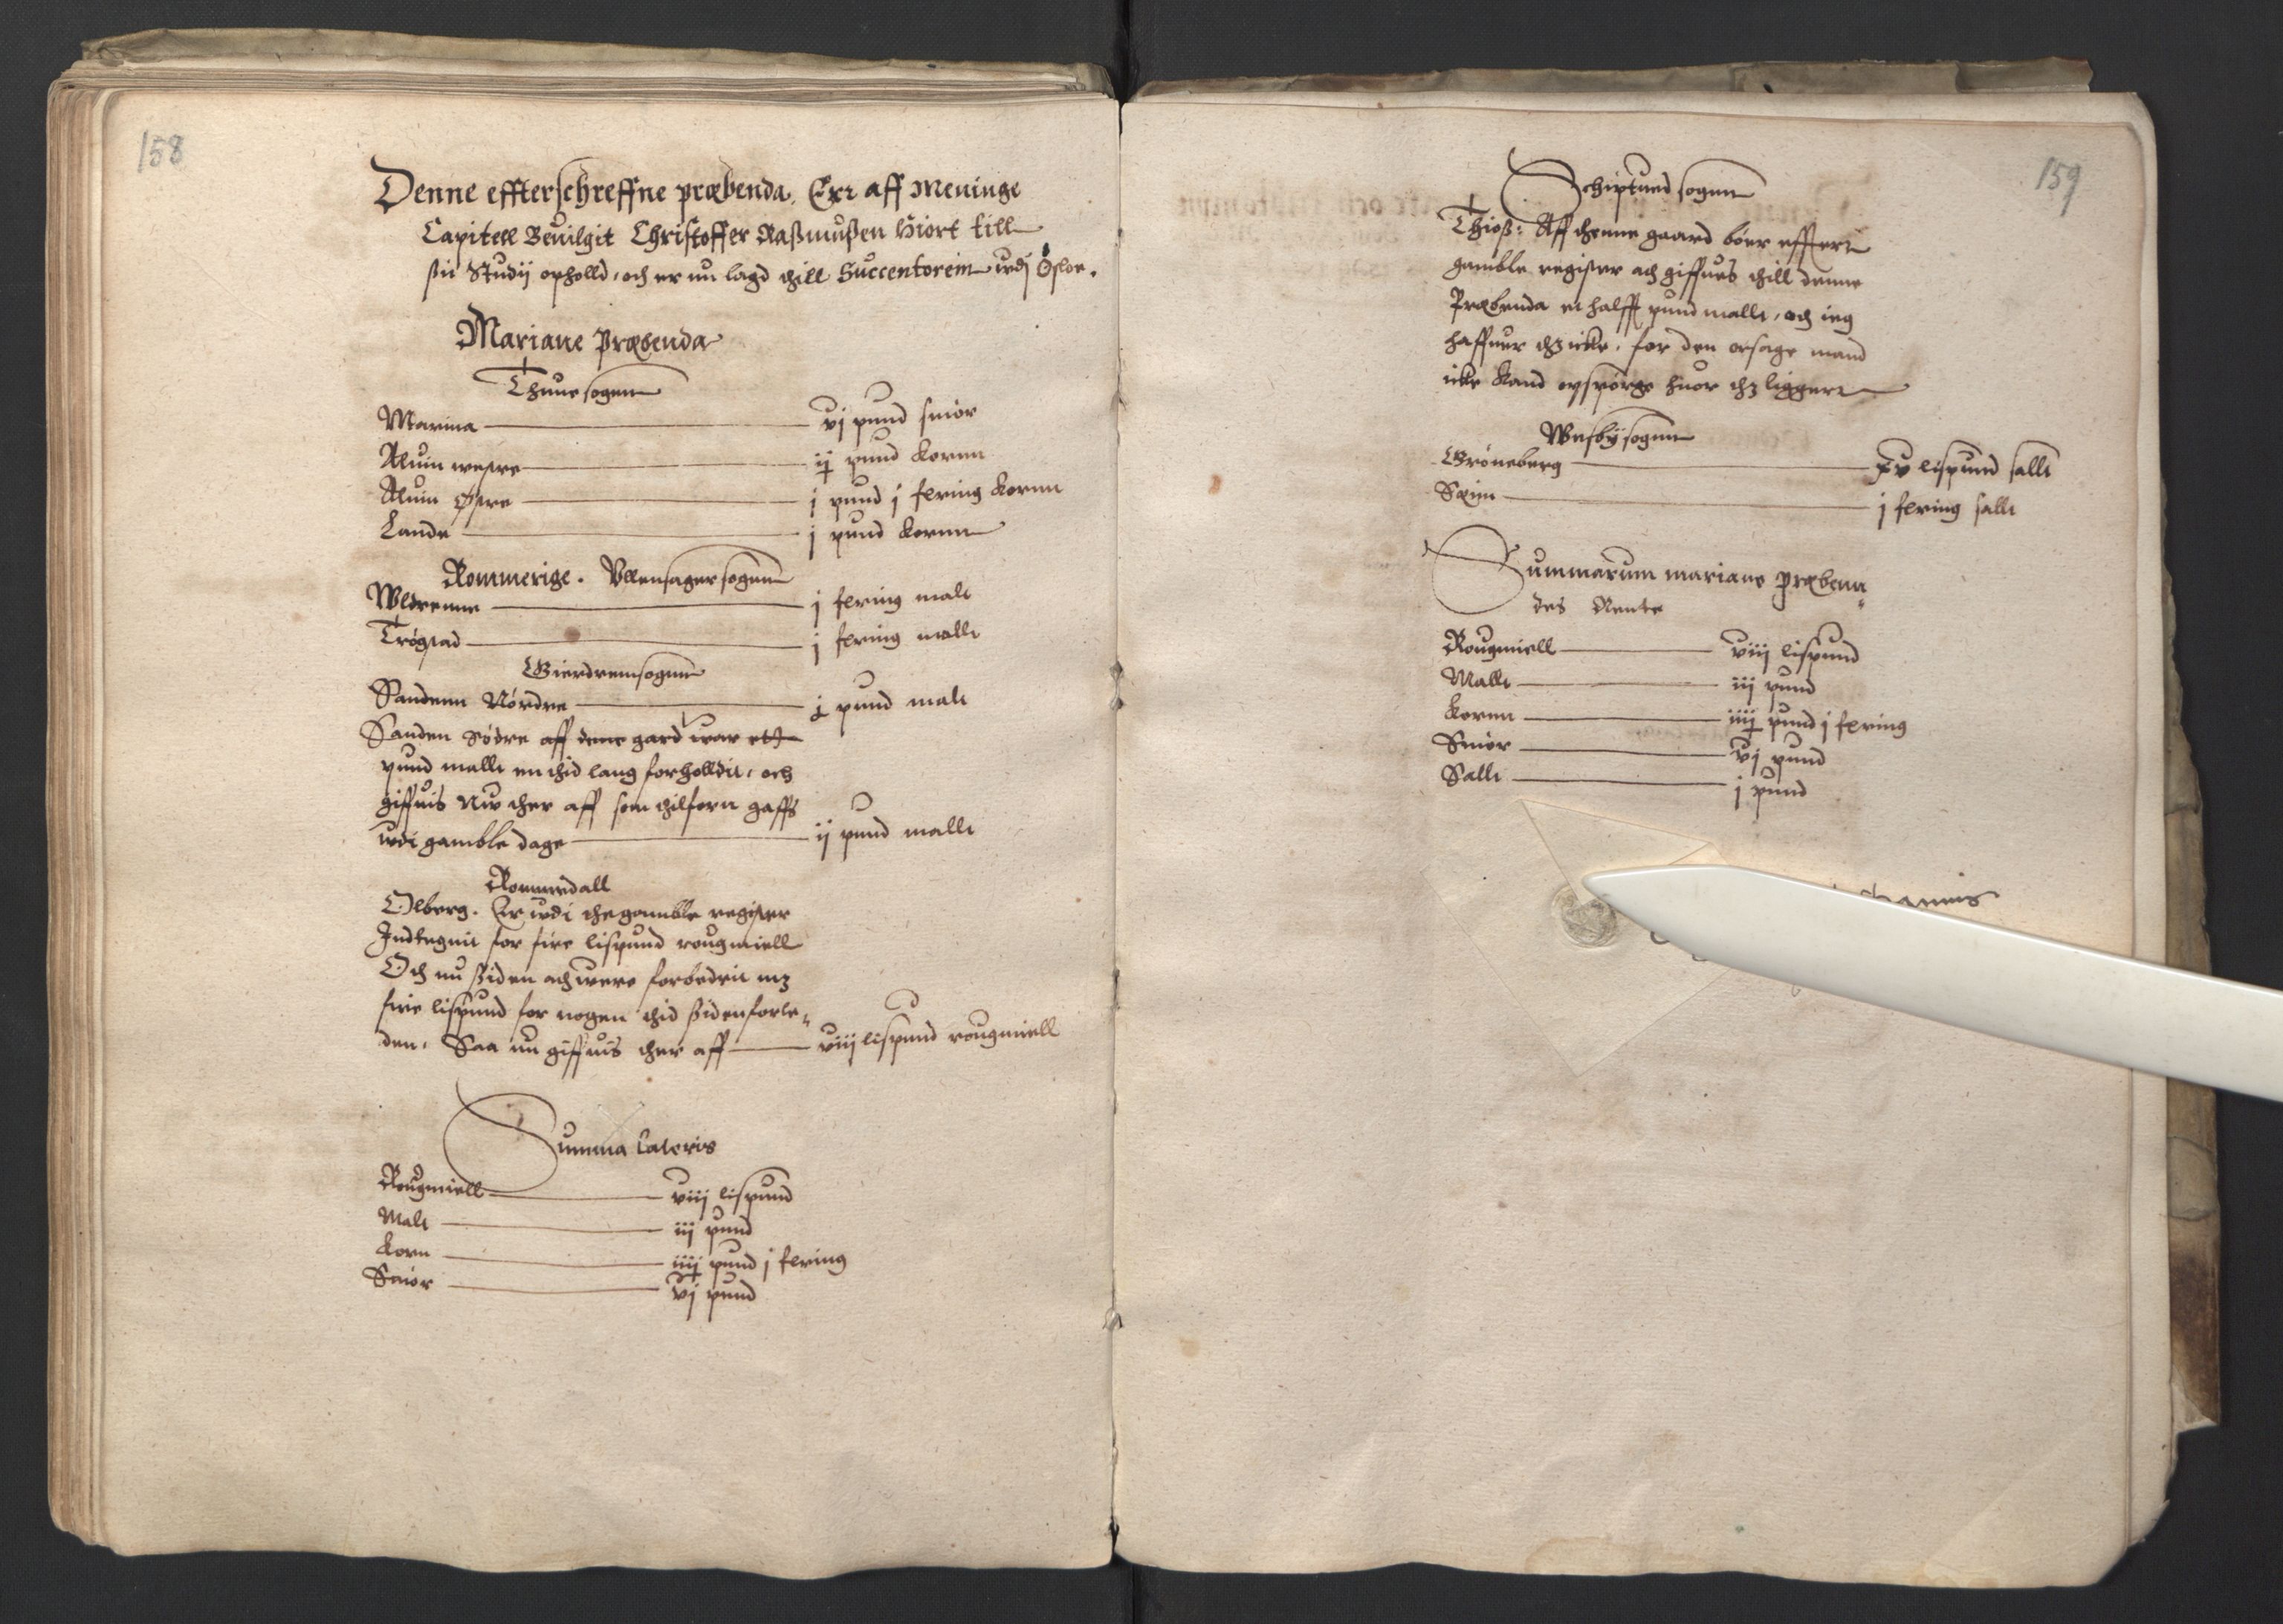 158
Denne effterschreffne præbenda. Err aff Meninge
Capitell Beuilgit Christoffer Raßmußen Hiort till
ßit Studij opholld, och er nu lagd thill Succentorem udj Osloe.
Mariane Præbenda
Thune sogenn
Marina vj pund smior
Aluin westre ij pund kornn
Aluin Østre j pund j fering kornn
Lande j pund kornn
Rommerige. Vllensager sogenn
Weldrenne j fering malt
Trøgstad j fering mallt
Gierdrem sogenn
Sandenn Nørdre j pund malt
Sanden Sødre aff denne gard war ett
pund mallt en thid lang forholldit, och
giffuis Nw ther aff som thilforn gaffs
wdi gamble dage ij pund mallt
Rommedall
Olberg. Er wdi the gamble register
Indtegnit for fire lispund rougmiell
Och nu ßiden ath were forbedrit mz
fire lispund for nogen thid ßiden forle„
den, Saa nu giffuis ther aff viij lispund rougmiell
Summa Lateris
Rougmiell viij lispund
Malt iij pund
Korn iiij pund j fering
Smior vj pund
159
Schiptued sogenn
Thioß: Aff thenne gaard bøer effterr
gamble register ath giffues thill denne
Præbenda en halfft pund mallt, och ieg
haffuer thz icke, for den orsage mand
icke kand opspørge huor thz liggerr
Weßby sogenn
Grøneberg xv lispund sallt
Sæim j fering sallt
Summarum mariane præbenn„
des Rente
Rougmiell viij lispund
Mallt iij pund
Kornn iiij pund j fering
Smior vj pund
Sallt j pund